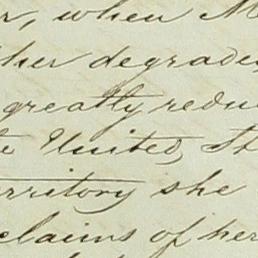 r, when M
her degrade
greatly redu
te United, St
erritory she
claims of her